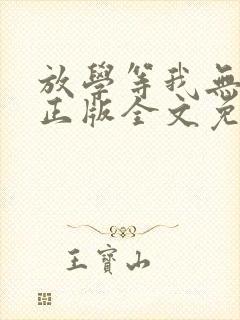 放學等我無
正版全文免
王寶山